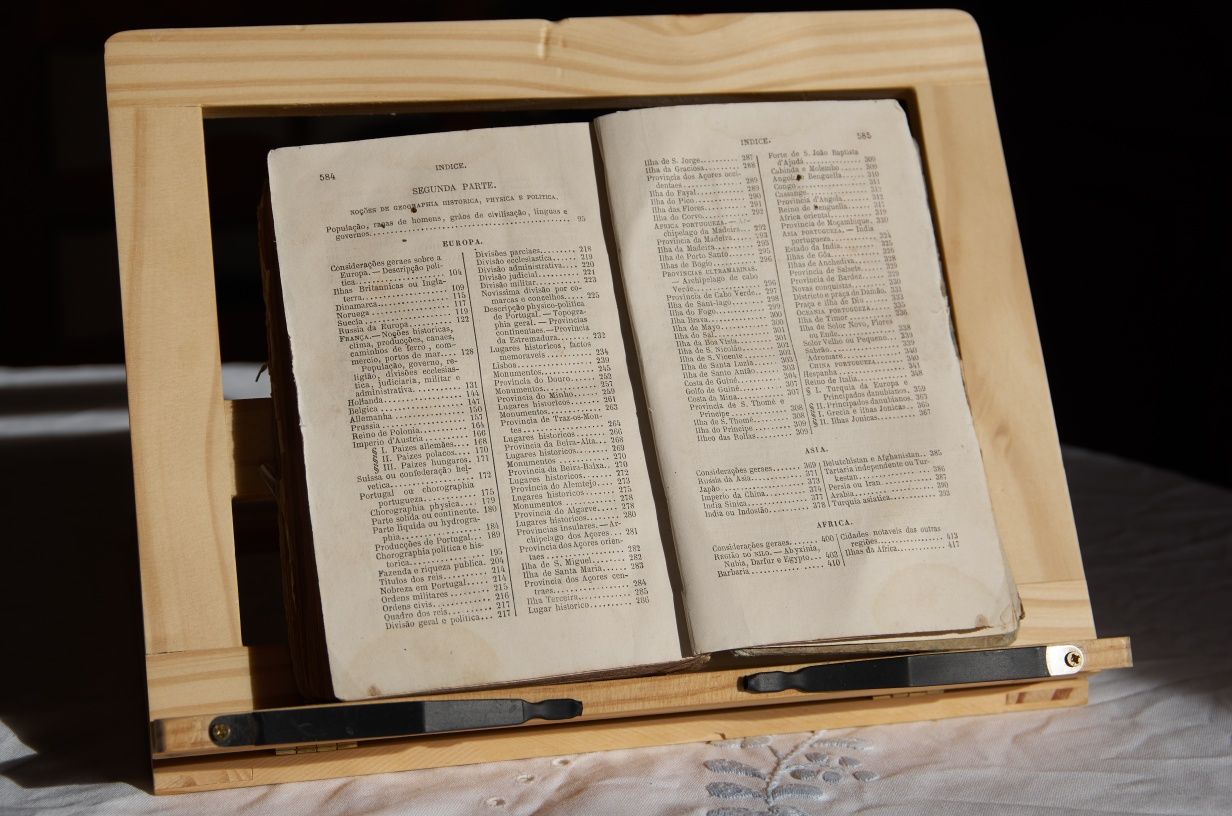 584
INDICE.
SEGUNDA PARTE.
NOÇÕES DE GEOGRAPHIA HISTORICA, PHYSICA E POLITICA.
População, raças de homens, gráos de civilisação, linguas e
governos.......... 95
EUROPA.
Considerações geraes sobre a
Europa. — Descripção poli-
tica.......... 104
Ilhas Britannicas ou Ingla-
terra.......... 109
Dinamarca.......... 115
Noruega.......... 117
Suecia.......... 119
Russia da Europa.......... 122
FRANÇA.—Noções historicas,
clima, producções, canaes,
caminhos de ferro, com-
mercio, portos de mar.... 128
População, governo, re-
ligião, divisões ecclesias-
tica, judiciaria, militar e
administrativa.......... 131
Hollanda.......... 144
Belgica.......... 147
Allemanha.......... 150
Prussia.......... 157
Reino de Polonia.......... 164
Imperio d'Austria.......... 166
§ I. Paizes allemães.... 168
§ II. Paizes polacos.... 170
§ III. Paizes hungaros. 171
Suissa ou confederação hel-
vetica.......... 172
Portugal ou chorographia
portugueza.......... 175
Chorographia physica.... 179
Parte solida ou continente. 180
Parte liquida ou hydrogra-
phia.......... 184
Producções de Portugal.... 189
Chorographia politica e his-
torica.......... 195
Fazenda e riqueza publica. 204
Titulos dos reis.......... 214
Nobreza em Portugal...... 214
Ordens militares.......... 215
Ordens civis.......... 216
Quadro dos reis.......... 217
Divisão geral e politica... 217
Divisões parciaes.......... 218
Divisão ecclesiastica...... 219
Divisão administrativa.... 220
Divisão judicial.......... 221
Divisão militar.......... 223
Novissima divisão por co-
marcas e concelhos...... 225
Descripção physico-politica
de Portugal. — Topogra-
phia geral. — Provincias
continentaes.—Provincia
da Estremadura.......... 232
Lugares historicos, factos
memoraveis.......... 234
Lisboa.......... 239
Monumentos.......... 245
Provincia do Douro...... 252
Monumentos.......... 257
Provincia do Minho...... 259
Lugares historicos...... 261
Monumentos.......... 263
Provincia de Traz-os-Mon-
tes.......... 264
Lugares historicos...... 266
Provincia da Beira-Alta... 268
Lugares historicos...... 269
Monumentos.......... 270
Provincia da Beira-Baixa.. 270
Lugares historicos...... 272
Provincia do Alemtejo.... 273
Lugares historicos...... 275
Monumentos.......... 278
Provincia do Algarve.... 278
Lugares historicos...... 280
Provincias insulares. — Ar-
chipelago dos Açores... 281
Provincia dos Açores orien-
taes.......... 282
Ilha de S. Miguel...... 282
Ilha de Santa Maria...... 283
Provincia dos Açores cen-
traes.......... 284
Ilha Terceira.......... 285
Lugar historico.......... 286
INDICE.
585
Ilha de S. Jorge.......... 287
Ilha da Graciosa.......... 288
Provincia dos Açores occi-
dentaes.......... 289
Ilha do Fayal.......... 289
Ilha do Pico.......... 290
Ilha das Flores.......... 291
Ilha do Corvo.......... 292
AFRICA PORTUGUEZA. — Ar-
chipelago da Madeira.... 292
Provincia da Madeira.... 293
Ilha da Madeira.......... 293
Ilha de Porto Santo...... 295
Ilhas de Bogio.......... 296
PROVINCIAS ULTRAMARINAS.
— Archipelago de cabo
Verde.......... 296
Provincia de Cabo Verde.. 297
Ilha de Sant-Iago.......... 298
Ilha do Fogo.......... 299
Ilha Brava.......... 299
Ilha de Mayo.......... 300
Ilha do Sal.......... 301
Ilha da Boa Vista.......... 301
Ilha de S. Nicoláo...... 301
Ilha de S. Vicente...... 302
Ilha de Santa Luzia...... 303
Ilha de Santo Antão...... 303
Costa de Guiné.......... 304
Golfo de Guiné.......... 307
Costa da Mina.......... 307
Provincia de S. Thomé e
Principe.......... 308
Ilha de S. Thomé...... 308
Ilha do Principe.......... 309
Ilheo das Rollas.......... 309
Forte de S. João Baptista
d'Ajudá.......... 309
Cabinda e Molembo...... 309
Angola e Benguella...... 310
Congo.......... 311
Cassange.......... 312
Provincia d'Angola...... 312
Reino de Benguella...... 317
Africa oriental.......... 319
Provincia de Moçambique.. 320
ASIA PORTUGUEZA. — India
portugueza.......... 324
Estado da India.......... 325
Ilhas de Gôa.......... 326
Ilhas de Anchediva...... 328
Provincia de Salsete...... 329
Provincia de Bardez...... 330
Novas conquistas.......... 330
Districto e praça de Damão. 331
Praça e ilha de Diu...... 333
OCEANIA PORTUGUEZA...... 335
Ilha de Timor.......... 336
Ilha de Solor Novo, Flores
ou Ende.......... 338
Solor Velho ou Pequeno.. 339
Sabrão.......... 339
Adronare.......... 340
CHINA PORTUGUEZA...... 340
Hespanha.......... 341
Reino de Italia.......... 348
§ I. Turquia da Europa e
Principados danubianos. 359
§ II. Principados danubianos. 363
§ I. Grecia e ilhas Jonicas. 365
§ II. Ilhas Jonicas...... 367
ASIA.
Considerações geraes...... 369
Russia da Asia.......... 371
Japão.......... 373
Imperio da China.......... 374
India Sinica.......... 377
India ou Indostão.......... 378
Belutchistan e Afghanistan.. 385
Tartaria independente ou Tur-
kestan.......... 386
Persia ou Iran.......... 387
Arabia.......... 390
Turquia asiatica.......... 393
AFRICA.
Considerações geraes...... 400
REGIÃO DO NILO. — Abyxinia,
Nubia, Darfur e Egypto.. 402
Barbaria.......... 410
Cidades notaveis das outras
regiões.......... 413
Ilhas da Africa.......... 417